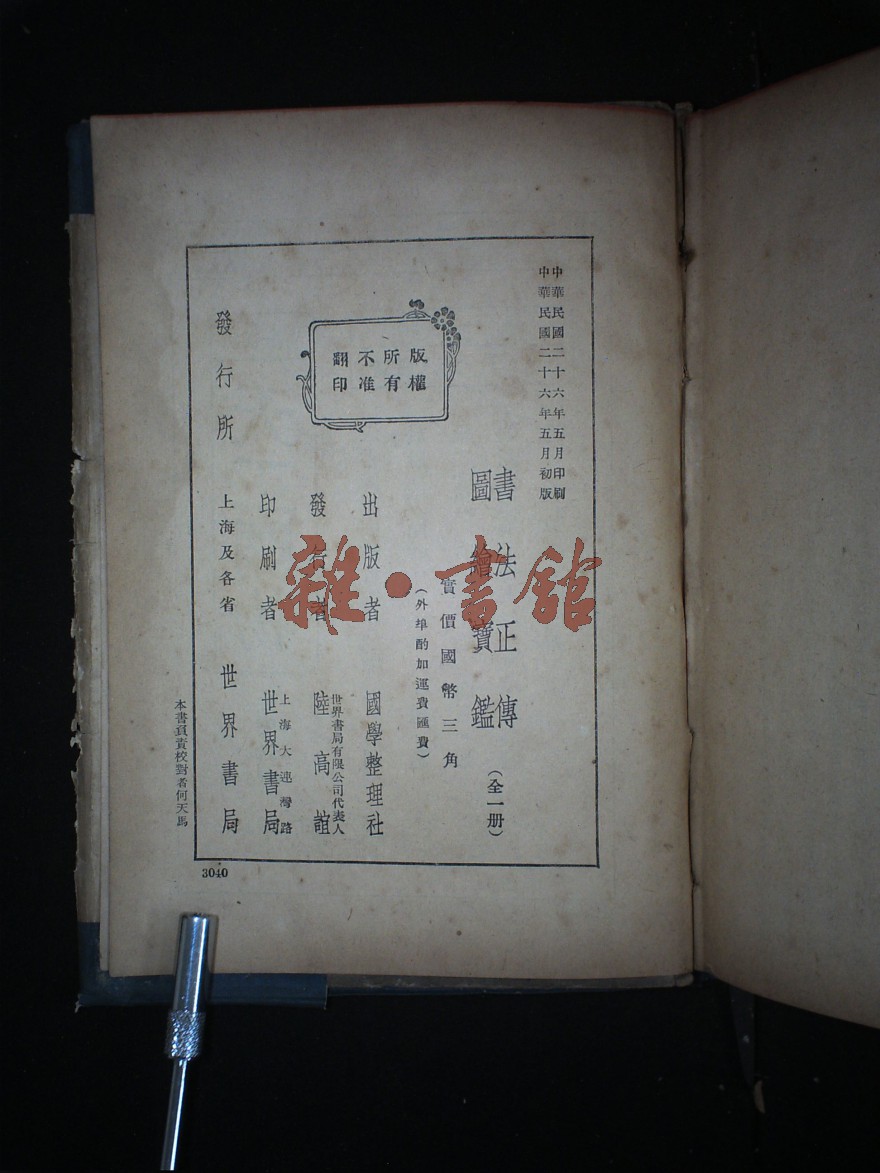 中華民國二十六年五月印刷
中華民國二十六年五月初版
書法正傳
圖繪寶鑑
(全一册)
實價國幣三角
(外埠酌加運費匯費)
版權
所有
不准
翻印
出版者 國學整理社
發行者 世界書局有限公司代表人 陸高誼
印刷者 上海大連灣路 世界書局
發行所 上海及各省 世界書局
本書負責校對者何天馬
3040
雜·書館